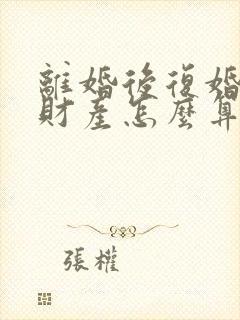 離婚後復婚
財產怎麼算
張權